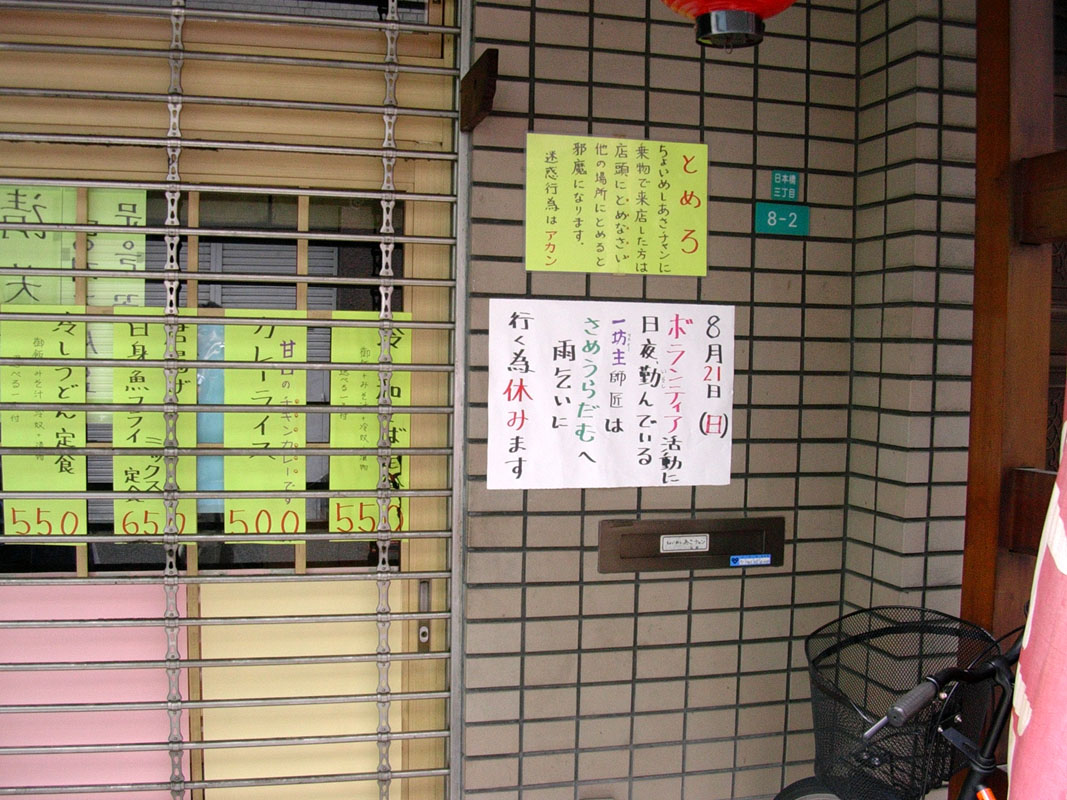 とめろ
ちょいめしあさチャンに
乗物で来店した方は
店頭にとめなさい
他の場所にとめると
邪魔になります.
迷惑行為はアカン
日本橋
三丁目
8-2
8月21日(日)
ボランティア活動に
日夜、勤んでいる
一坊主師匠は
さめうらだむへ
雨乞いに
行く為休みます
冷しうどん定食
550
白身魚フライ
ミックス定食
650
甘口のチキンカレーです
カレーライス
500
550